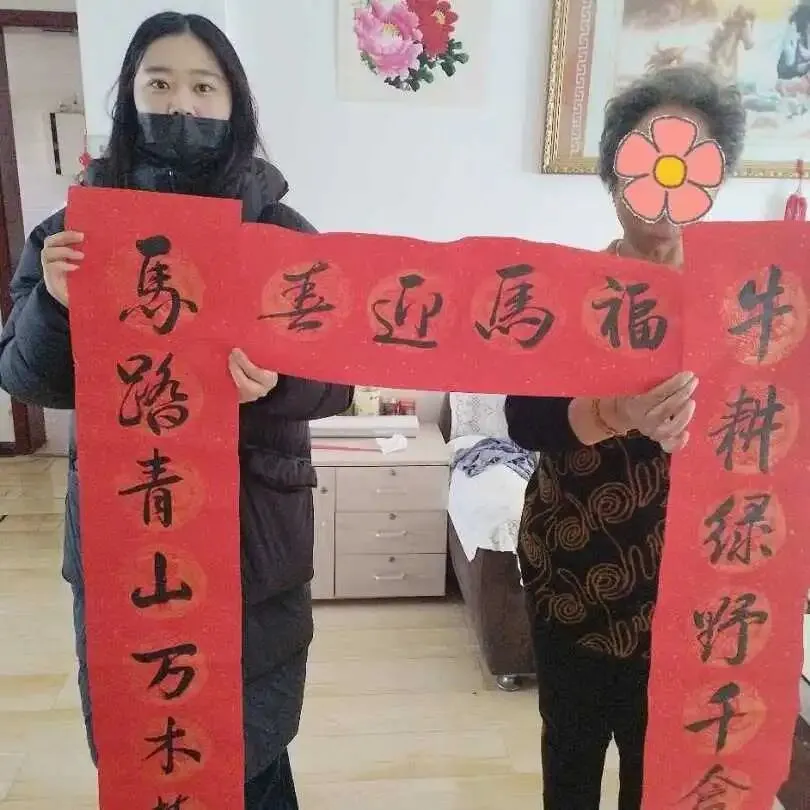 牛耕绿野千
馬踏青山万木
福馬迎善